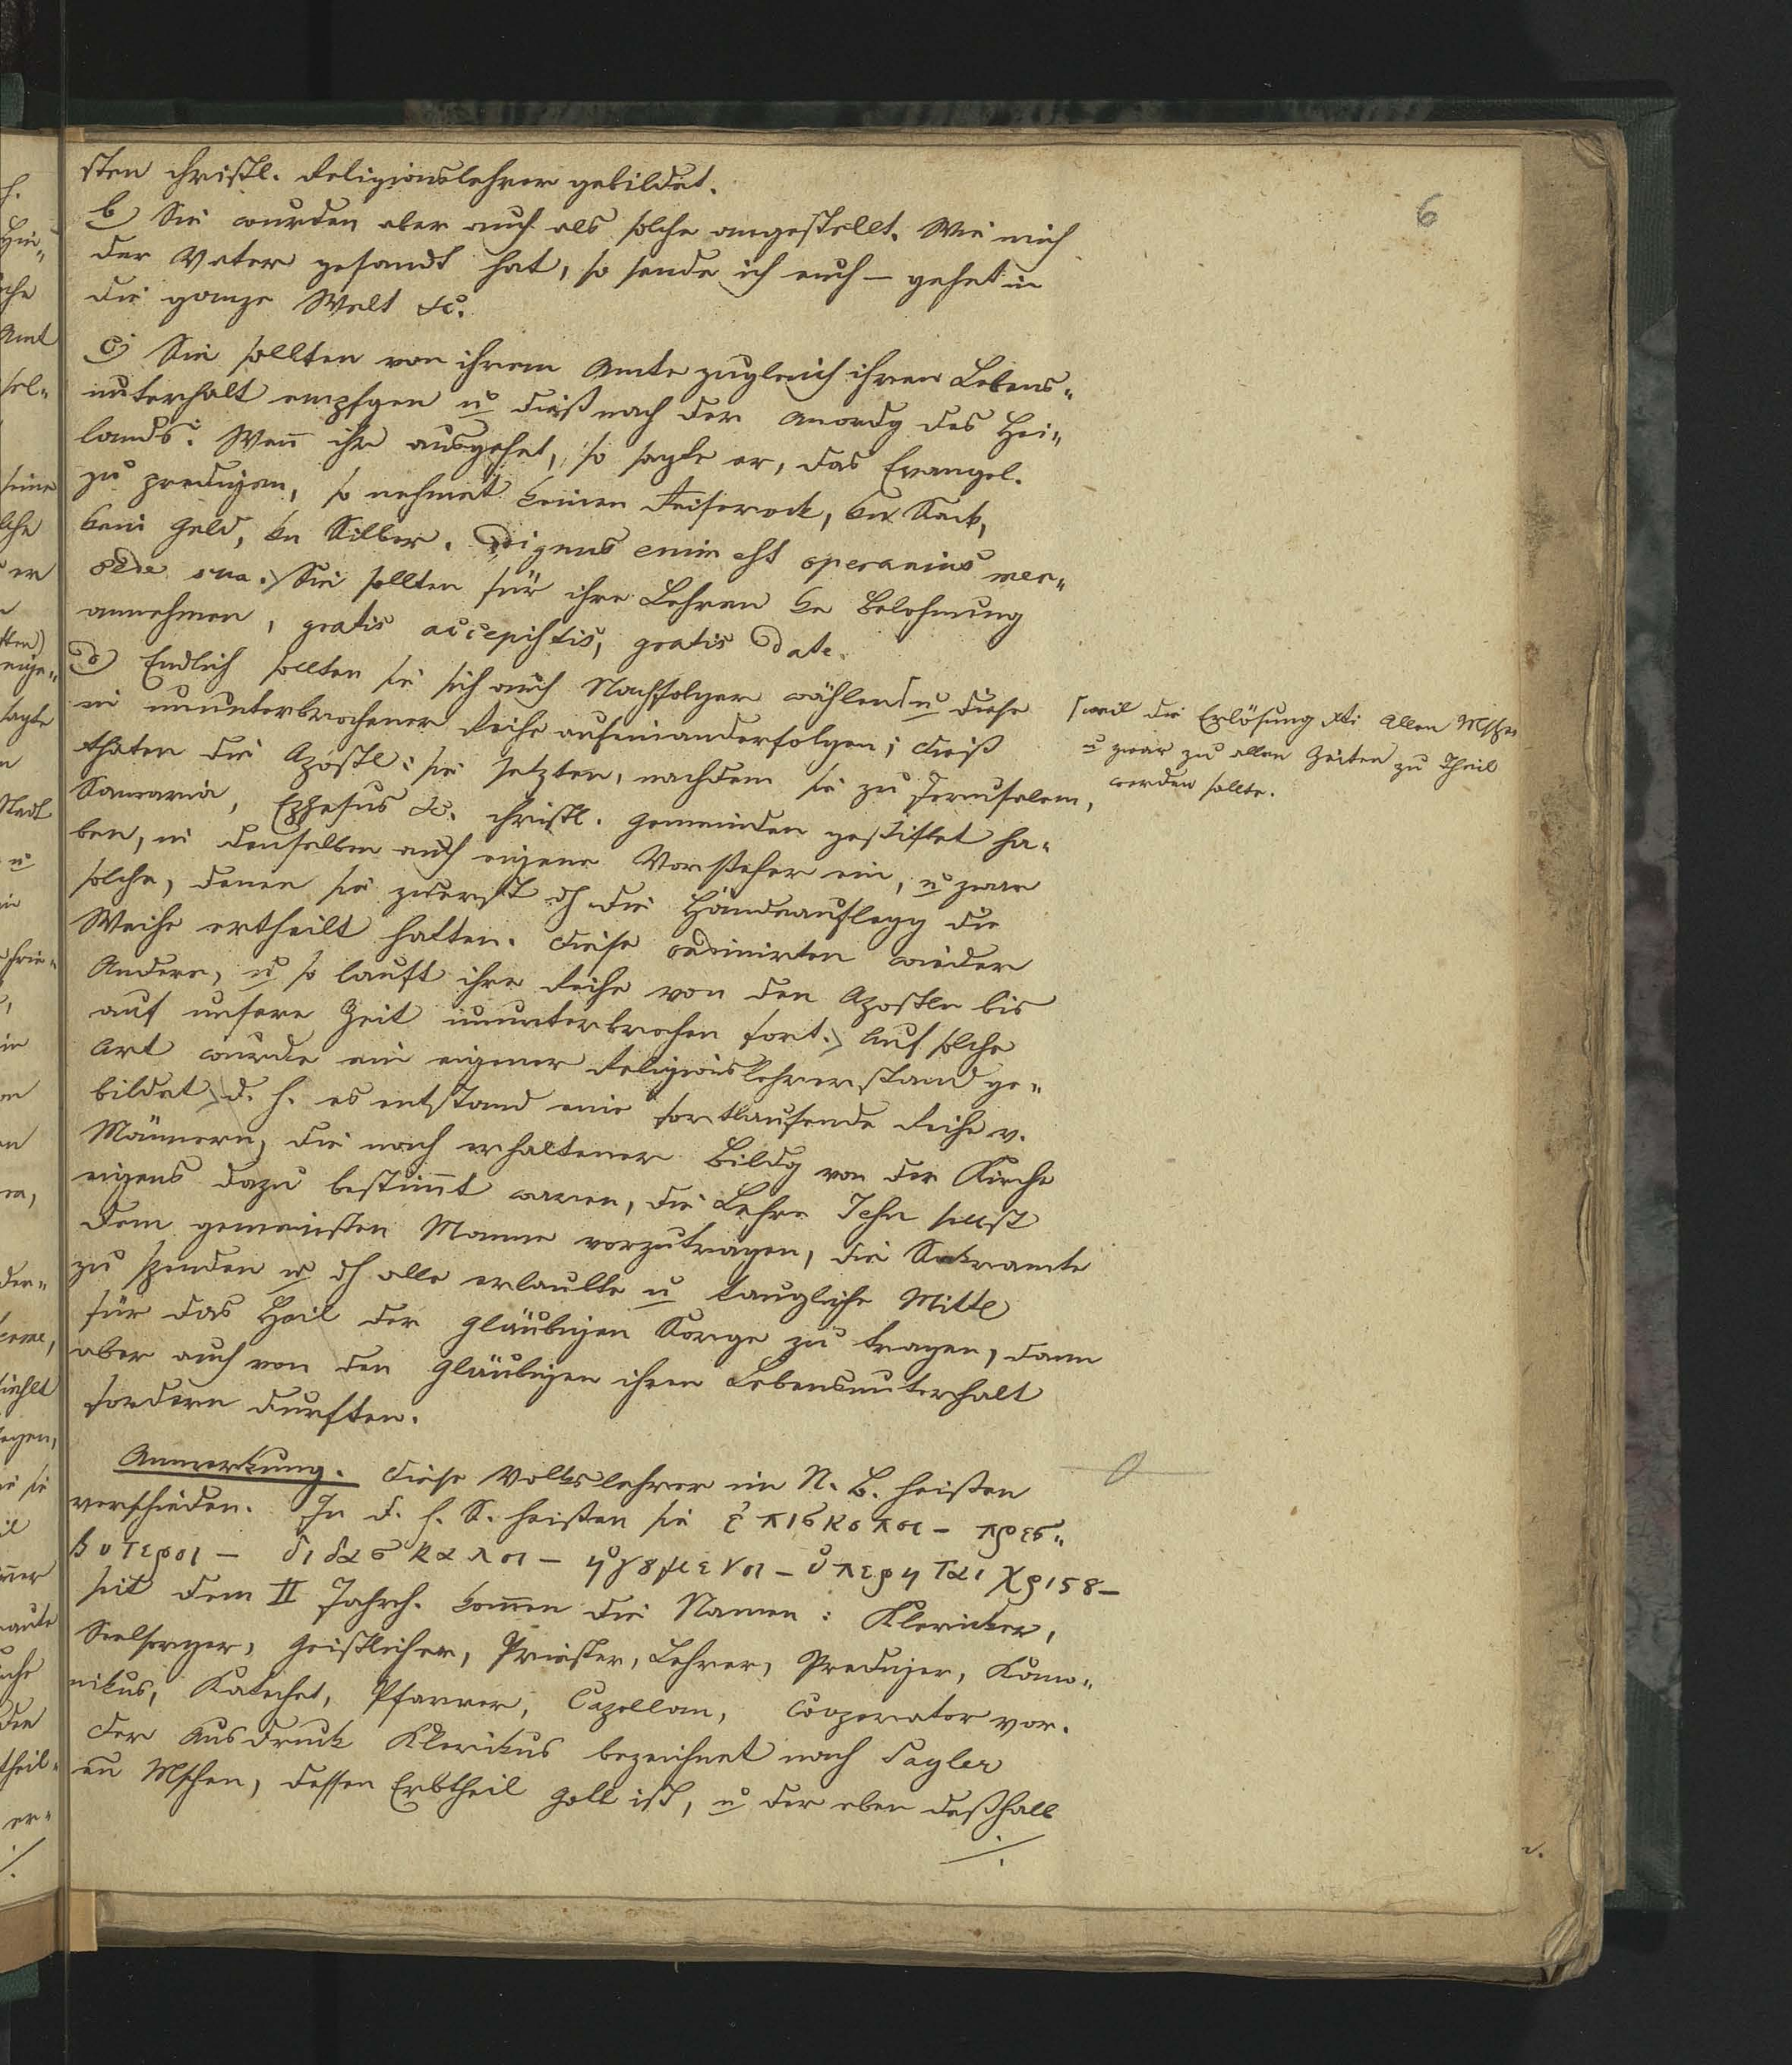 6
sten christl. Religionslehrer gebildet.
b) Sie wurden aber auch als solche angestellt. Wie mich
der Vater gesandt hat, so sende ich euch – gehet in
die ganze Welt &c.
c) Sie sollten von ihrem Amte zugleich ihren Lebens„
unterhalt empfgen u dieß nach der Anordg des Hei„
lands: Wenn ihr ausgehet, so sagte er, das Evangel.
zu predigen, so nehmet keinen Reiserock, kn Sack,
kein Geld, kn Silber. Dignus enim est operarius mer„
cede sua. Sie sollten für ihre Lehren ke Belohnung
annehmen, gratis accepistis, gratis date.
d) Endlich sollten sie sich auch Nachfolger wählen ⌈ u diese
in ununterbrochener Reihe aufeinanderfolgen; dieß
thaten die Apostl: sie setzten, nachdem sie zu Jerusalem,
Samaria, Ephesus &c. christl. Gemeinden gestiftet ha„
ben, in denselben auch eigene Vorsteher ein, u zwar
solche, denen sie zuerst dh die Händeauflegg die
Weihe ertheilt hatten. Diese ordinirten wieder
Andere, u so lauft ihre Reihe von den Aposteln bis
auf unsere Zeit ununterbrochen fort. Auf solche
Art wurde ein eigener Religionslehrerstand ge„
bildet, d. h. es entstand eine fortlaufende Reihe v.
Männern, die nach erhaltener Bildg von der Kirche
eigens dazu bestimmt waren, die Lehre Jesu selbst
dem gemeinsten Manne vorzutragen, die Sakramte
zu spenden u dh alle erlaubte u taugliche Mittel
für das Heil der Gläubigen Sorge zu tragen, dann
aber auch von den Gläubigen ihren Lebensunterhalt
fordern durften.
⌈ weil die Erlösung Xti Allen Mschen
u zwar zu allen Zeiten zu Theil
werden sollte.
Anmerkung. Diese Volkslehrer im N. B. heißen
verschieden. In d. h. S. heißen sie ἐπισκοποι – πρεσ„
βυτεροι – διδασκαλοι – ἡγȣμενοι – ὑπερηται χριϛȣ –
seit dem II Jahrh. kommen die Namen: Kleriker,
Seelsorger, Geistlicher, Priester, Lehrer, Prediger, Kano„
nikus, Katechet, Pfarrer, Capellan, Cooperator vor.
Der Ausdruck Klerikus bezeichnet nach Sayler
en Mschen, dessen Erbtheil Gott ist, u der eben deßhalb
./.